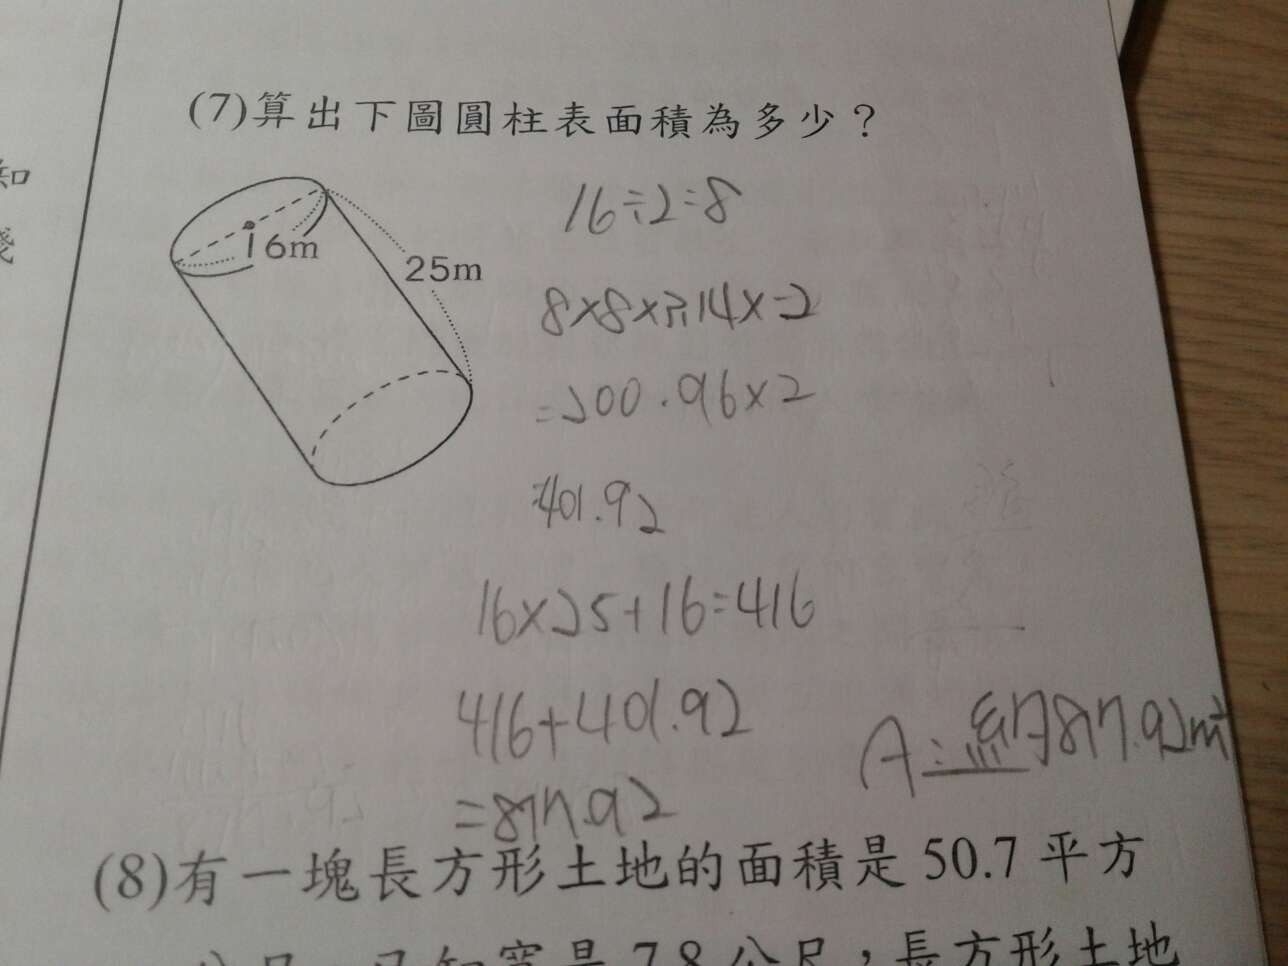 知
(7)算出下圖圓柱表面積為多少?
16m
25m
16÷2=8
8×8×3.14×2
=200.96×2
=401.92
16×25+16=416
416+401.92
=817.92
A:約817.92m²
(8)有一塊長方形土地的面積是50.7平方
公尺,已知寬是7.8公尺,長方形土地